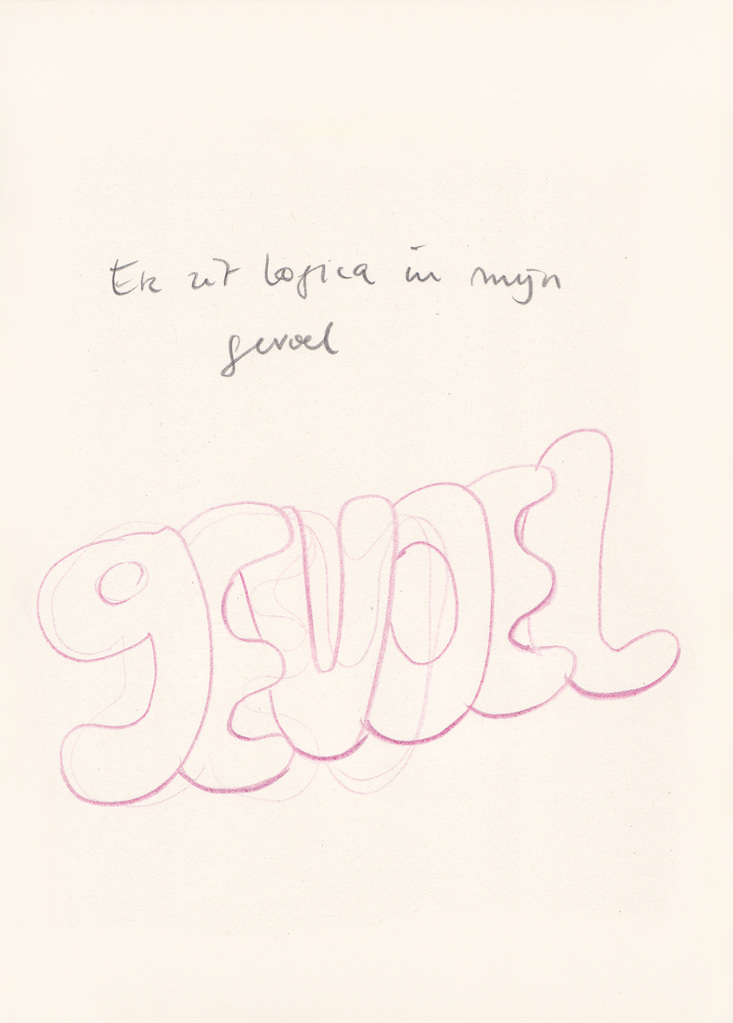 Er zit logica in mijn
gevoel
gEVOEL